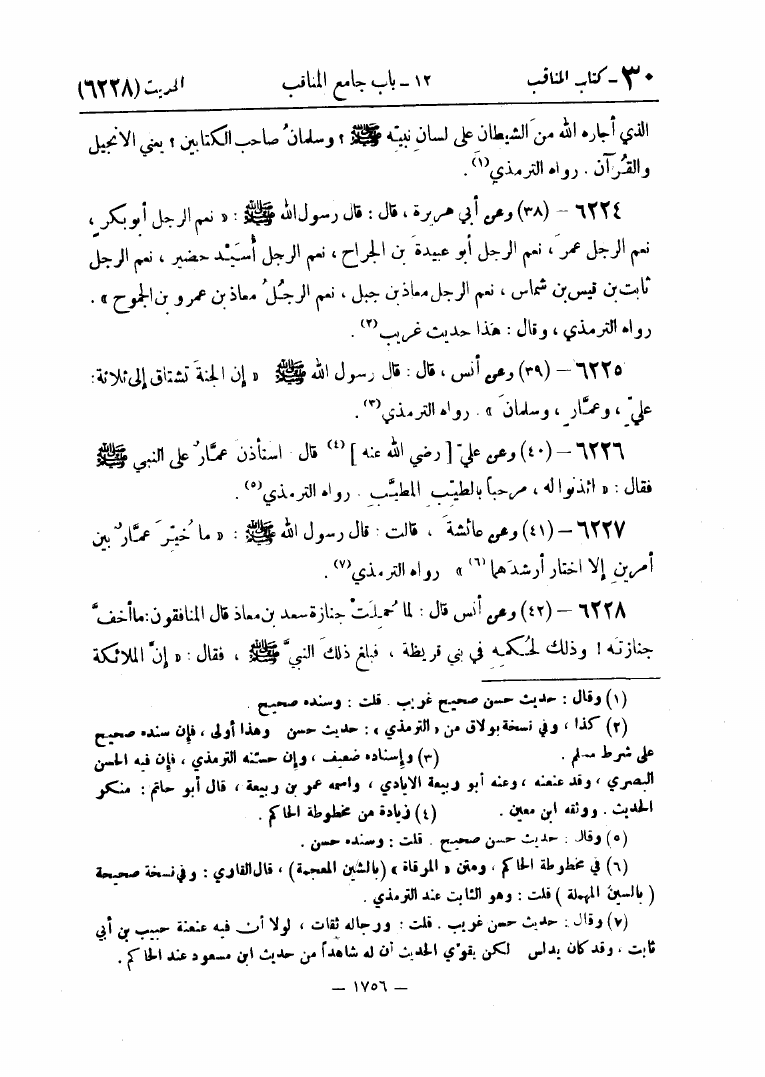 ٣٠ - كتاب المناقب ١٢ - باب جامع المناقب الحديث (٦٢٢٨)
الذي أجاره الله من الشيطان على لسان نبيّه ﷺ ؟ وسلمانُ صاحب الكتابين ؟ يعني الانجيل
والقُرآن . رواه الترمذي(١) .
٦٢٢٤ – (٣٨) وعن أبي هريرة ، قال : قال رسول الله ﷺ : « نعم الرجل أبو بكرٍ ،
نعم الرجل عمرَ ، نعم الرجل أبو عبيدةَ بن الجراح ، نعم الرجل أُسَيْد حضير ، نعم الرجل
ثابت بن قيس بن شماس ، نعم الرجل معاذ بن جبل ، نعم الرجُلُ معاذ بن عمرو بن الجموح » .
رواه الترمذي ، وقال : هذا حديث غريب(٢) .
٦٢٢٥ – (٣٩) وعن أنس ، قال : قال رسول الله ﷺ « إن الجنةَ تشتاق إلى ثلاثة :
عليّ ، وعمَّارٍ ، وسلمانَ » . رواه الترمذي(٣) .
٦٢٢٦ – (٤٠) وعن عليّ [ رضي الله عنه ](٤) قال استأذن عمَّارُ على النبي ﷺ
فقال : « ائذنوا له ، مرحباً بالطيّبِ المطيَّبِ . رواه الترمذي(٥) .
٦٢٢٧ – (٤١) وعن عائشةَ ، قالت : قال رسول الله ﷺ : « ما خُيِّرَ عمَّارُ بين
أمرينِ إلا اختار أرشدَهما(٦) » رواه الترمذي(٧) .
٦٢٢٨ – (٤٢) وعن أنس قال : لما حُمِلَتْ جنازة سعد بن معاذ قال المنافقون : ما أخفَّ
جنازتَه ! وذلك لحُكمِهِ في بني قريظة ، فبلغ ذلكَ النبيَّ ﷺ ، فقال : « إنَّ الملائكة
(١) وقال : حديث حسن صحيح غريب . قلت : وسنده صحيح .
(٢) كذا ، وفي نسخة بولاق من « الترمذي » : حديث حسن وهذا أولى ، فإن سنده صحيح
على شرط مسلم . (٣) وإسناده ضعيف ، وإن حسَّنه الترمذي ، فإن فيه الحسن
البصري ، وقد عنعنه ، وعنه أبو ربيعة الايادي ، واسمه عمر بن ربيعة ، قال أبو حاتم : منكر
الحديث . ووثقه ابن معين . (٤) زيادة من مخطوطة الحاكم .
(٥) وقال : حديث حسن صحيح . قلت : وسنده حسن .
(٦) في مخطوطة الحاكم ، ومتن « المرقاة » (بالشين المعجمة) ، قال القاري : وفي نسخة صحيحة
( بالسين المهملة ) قلت : وهو الثابت عند الترمذي .
(٧) وقال : حديث حسن غريب . قلت : ورجاله ثقات ، لولا أن فيه عنعنة حبيب بن أبي
ثابت ، وقد كان يدلس لكن يقوّي الحديث أن له شاهداً من حديث ابن مسعود عند الحاكم .
– ١٧٥٦ –